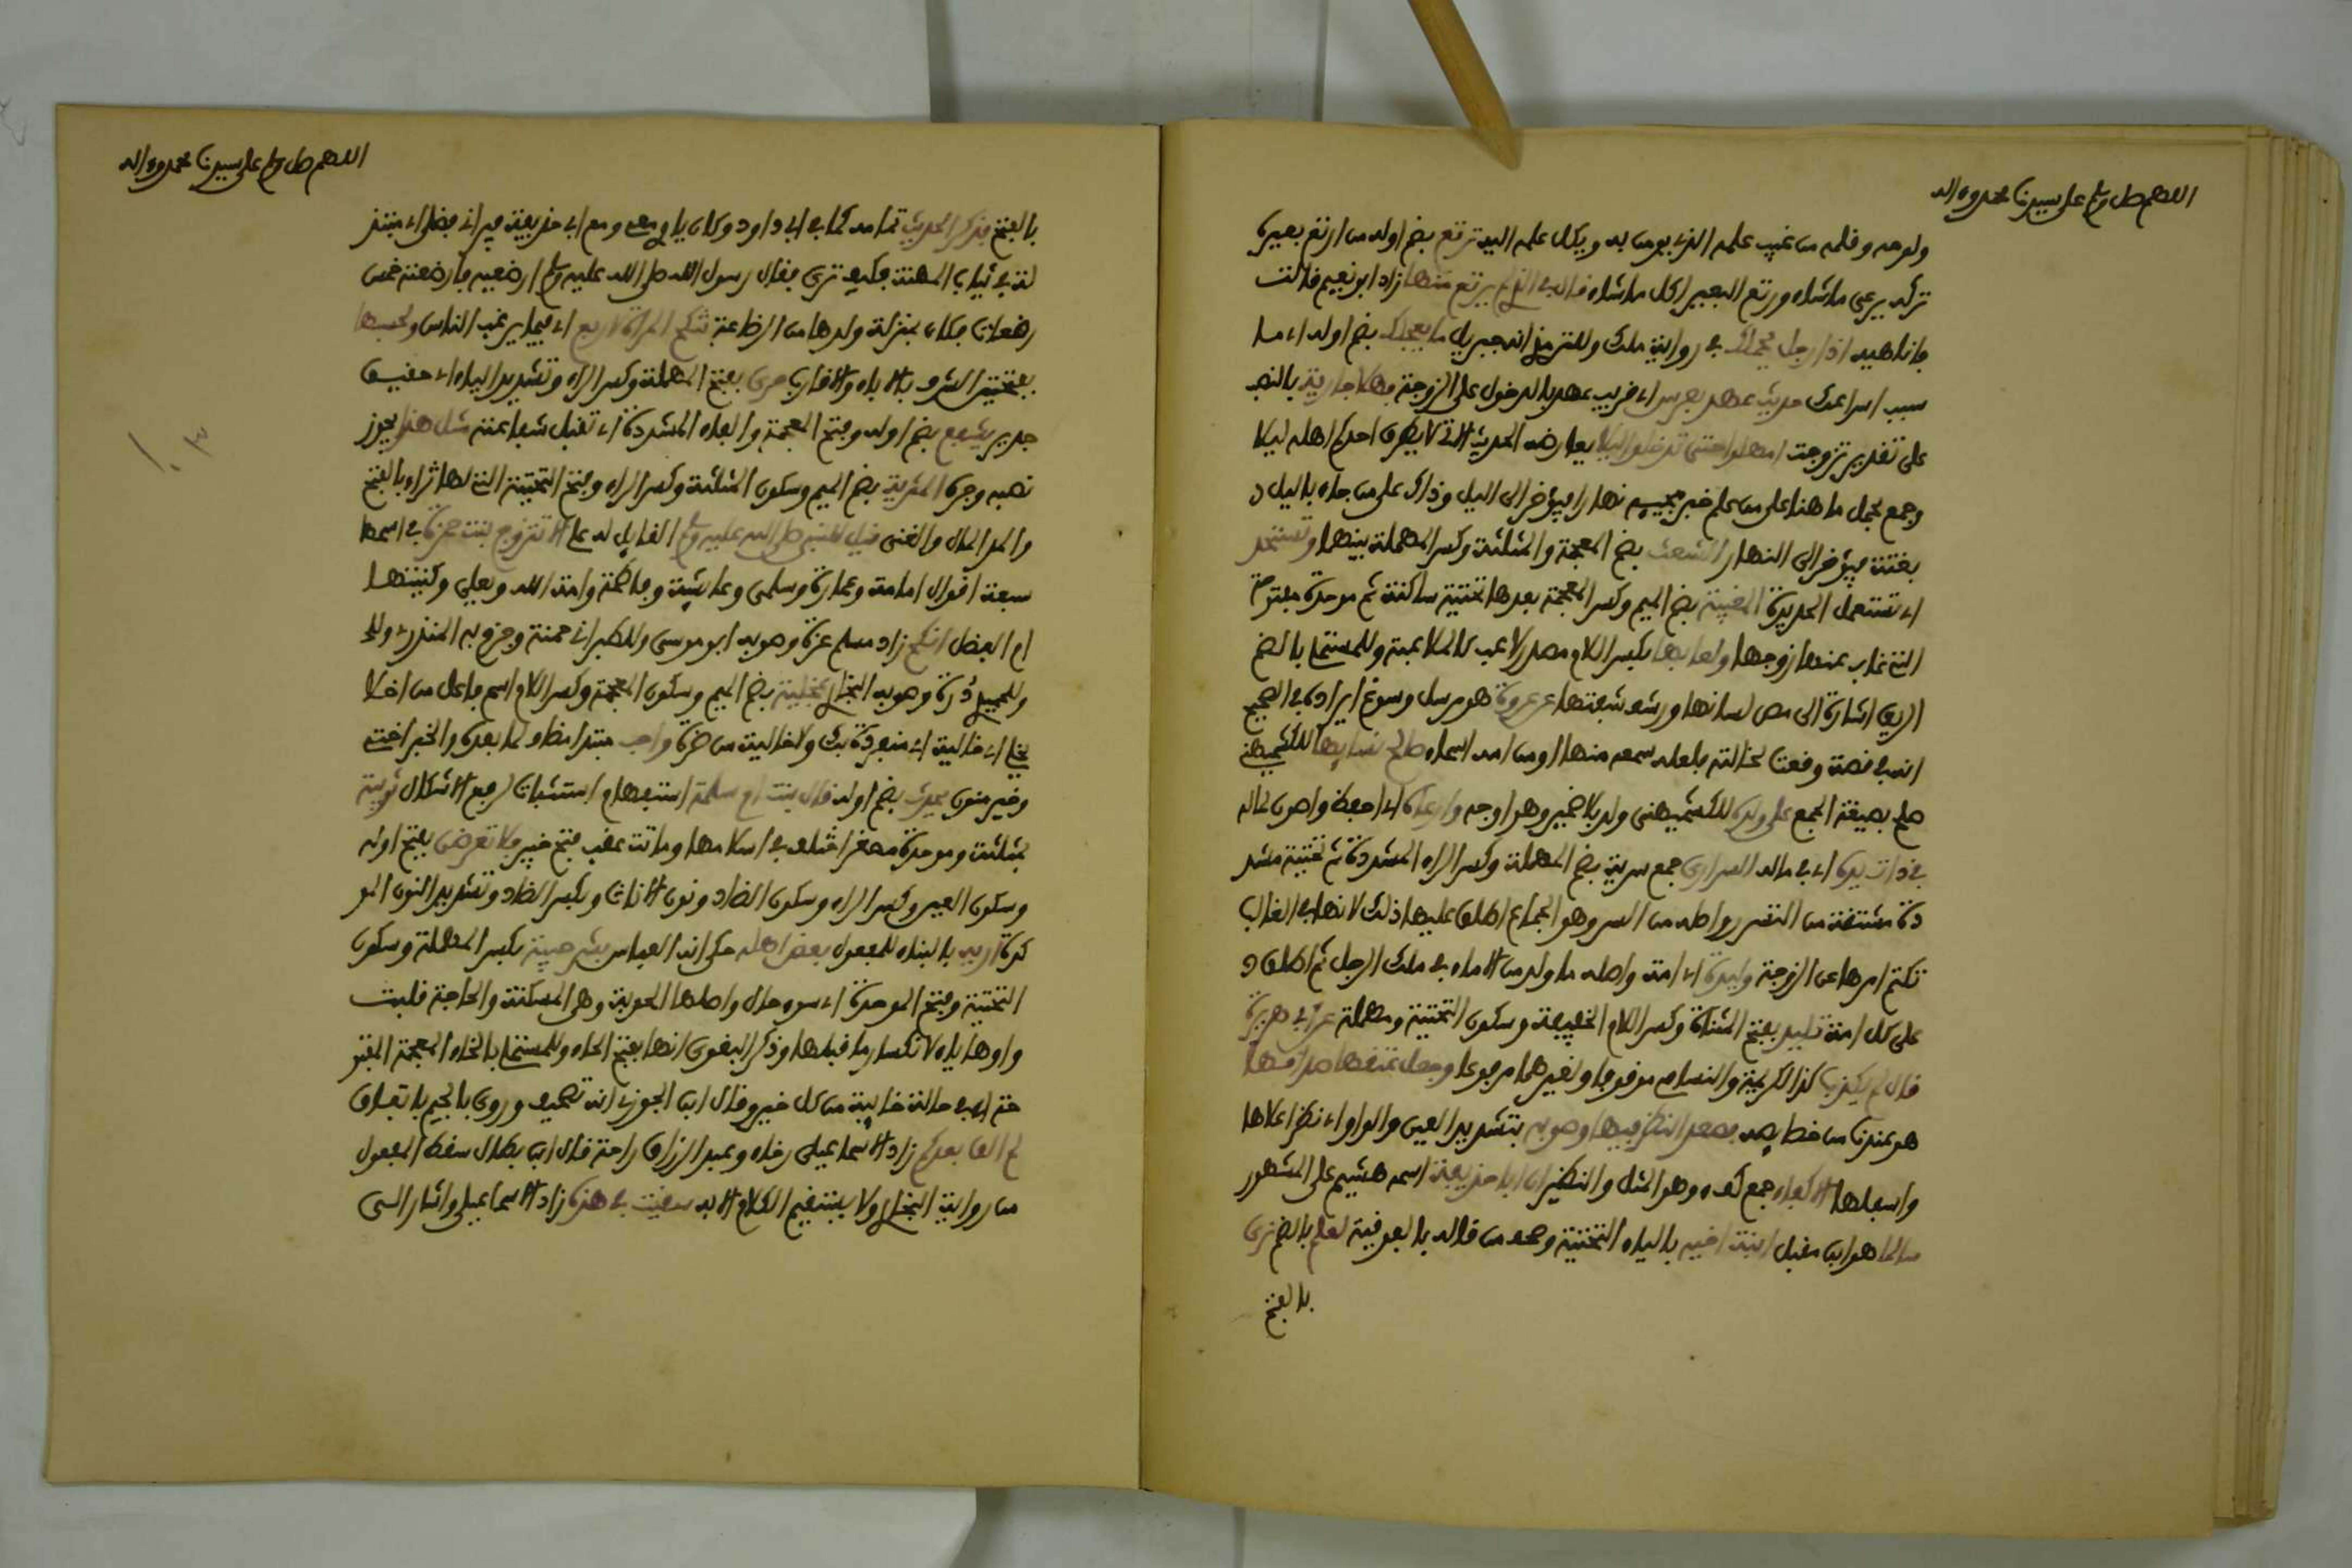 اللهم صل وسلم على سيدنا محمد وءاله
ولوحه وقلمه من غيب علمه الذي يومن به ويكل علمه اليه ترتع بضم اوله من ارتع بعيره
تركه يرعى ما شاء ورتع البعير اكل ما شاء قال في التي لم يرتع منها زاد ابو نعيم قالت
فانا هيه اذا رجل يحملك في رواية ملك وللترمذي انه جبريل ما يعجلك بضم اوله اي ما
سبب اسراعك حديث عهد بعرس اي قريب عهد بالدخول على الزوجة فهلا جارية بالنصب
على تقدير تزوجت امهلوا حتى تدخلوا ليلا يعارضه الحديث الاتي لا يطرق احدكم اهله ليلا
وجمع بحمل ما هنا على من علم خبر مجيئه نهارا فيؤخر الى اليل وذاك على من جاء باليل
بغتة فيؤخر الى النهار الشعثة بفتح المعجمة والمثلثة وكسر المهملة بينهما وتستحد
اي تستعمل الحديدة المغيبة بضم الميم وكسر المعجمة بعدها تحتية ساكنة ثم موحدة مفتوحة
التي غاب عنها زوجها ولعابها بكسر اللام مصدر لاعب كالملاعبة وللمستملي بالضم
الريق اشارة الى مص لسانها ورشف شفتها عن عروة هو مرسل وسوغ ايراده في الصحيح
انه في قصة وقعت لخالته فلعله سمعه منها او من امه اسماء صالح نساء للكشميهني
صلح بصيغة الجمع على ولده للكشميهني ولد بلا ضمير وهو اوجه وارعاه اي احفظ واصون لماله
في ذات يده اي في ماله السراري جمع سرية بضم المهملة وكسر الراء المشددة ثم تحتية مشد
دة مشتقة من التسرر واصله من السر وهو الجماع اطلق عليها ذلك لانها في الغالب
تكتم امرها عن الزوجة وليدة اي امة واصله ما ولد من الاماء في ملك الرجل ثم اطلق
على كل امة تليد بفتح المثناة وكسر اللام الخفيفة وسكون التحتية ومهملة عن ابي هريرة
قال لم يكذب كذا لكريمة والنسفي موقوفا ولغيرهما مرفوعا وجعل عتقها صداقها
هو عندنا من خصايصه فصعد النظر فيها وصوبه بتشديد العين والواو اي نظر اعلاها
واسفلها الاكفاء جمع كفء وهو المثل والنظير ان ابا حذيفة اسمه هشيم على المشهور
سالما هو ابن معقل ابنة اخيه بالياء التحتية وصحف من قاله بالفوقية لعلم بالضم نرى
بالفتح
اللهم صل وسلم على سيدنا محمد وءاله
بالفتح فذكر الحديث تمامه كما في ابي داود وكان ياوي معي ومع ابي حذيفة فيراني فضلى اي متبذ
لة في ثياب المهنة فكيف ترى فقال رسول الله صلى الله عليه وسلم ارضعيه فارضعته خمس
رضعات فكان بمنزلة ولدها من الرضاعة تنكح المراة لاربع اي فيما يرغب الناس ولحسبها
بفتحتين الشرف بالاباء والاقارب حري بفتح المهملة وكسر الراء وتشديد الياء اي حقيق
جدير يشفع بضم اوله وفتح المعجمة والفاء المشددة اي تقبل شفاعته مثل هذا يجوز
نصبه وجره المثرية بضم الميم وسكون المثلثة وكسر الراء وفتح التحتية التي لها ثراء بالفتح
والمد المال والغنى قيل للنبي صلى الله عليه وسلم القايل له علي الا تتزوج بنت حمزة في اسمها
سبعة اقوال امامة وعمارة وسلمى وعايشة وفاطمة وامة الله ويعلى وكنيتها
ام الفضل انكح زاد مسلم عزة وصوبه ابو موسى وللطبراني حمنة وجزم به المنذري
وللحميدي درة وصوبه البخاري بمخلية بضم الميم وسكون المعجمة وكسر اللام اسم فاعل من اخلا
يخلي اي خالية اي منفردة بك ولا خالية من ضرة واحب مبتدا مضاف لما بعده والخبر اختي
وخير منون يحدث بضم اوله قال بنت ام سلمة استفهام استثبات لرفع الاشكال ثويبة
بمثلثة وموحدة مصغرا اختلف في اسلامها وماتت عقب فتح خيبر فلا تعرضن بفتح اوله
وسكون العين وكسر الراء وسكون الضاد ونون الاناث وبكسر الضاد وتشديد النون المو
كدة اريه بالبناء للمفعول بعض اهله حكي انه العباس بشر حيبة بكسر المهملة وسكون
التحتية وفتح الموحدة اي سوء حال واصلها الحوبة وهي المسكنة والحاجة قلبت
واوها ياء لانكسار ما قبلها وذكر البغوي انها بفتح الحاء وللمستملي بالخاء المعجمة المفتو
حة اي في حالة خايبة من كل خير وقال ابن الجوزي انه تصحيف وروى بالجيم باتفاق
لم الق بعدكم زاد الاسماعيلي رخاء وعبد الرزاق راحة قال ابن بطال سقط المفعول
من رواية البخاري ولا يستقيم الكلام الا به سقيت في هذه زاد الاسماعيلي واشار الى
١٠٣